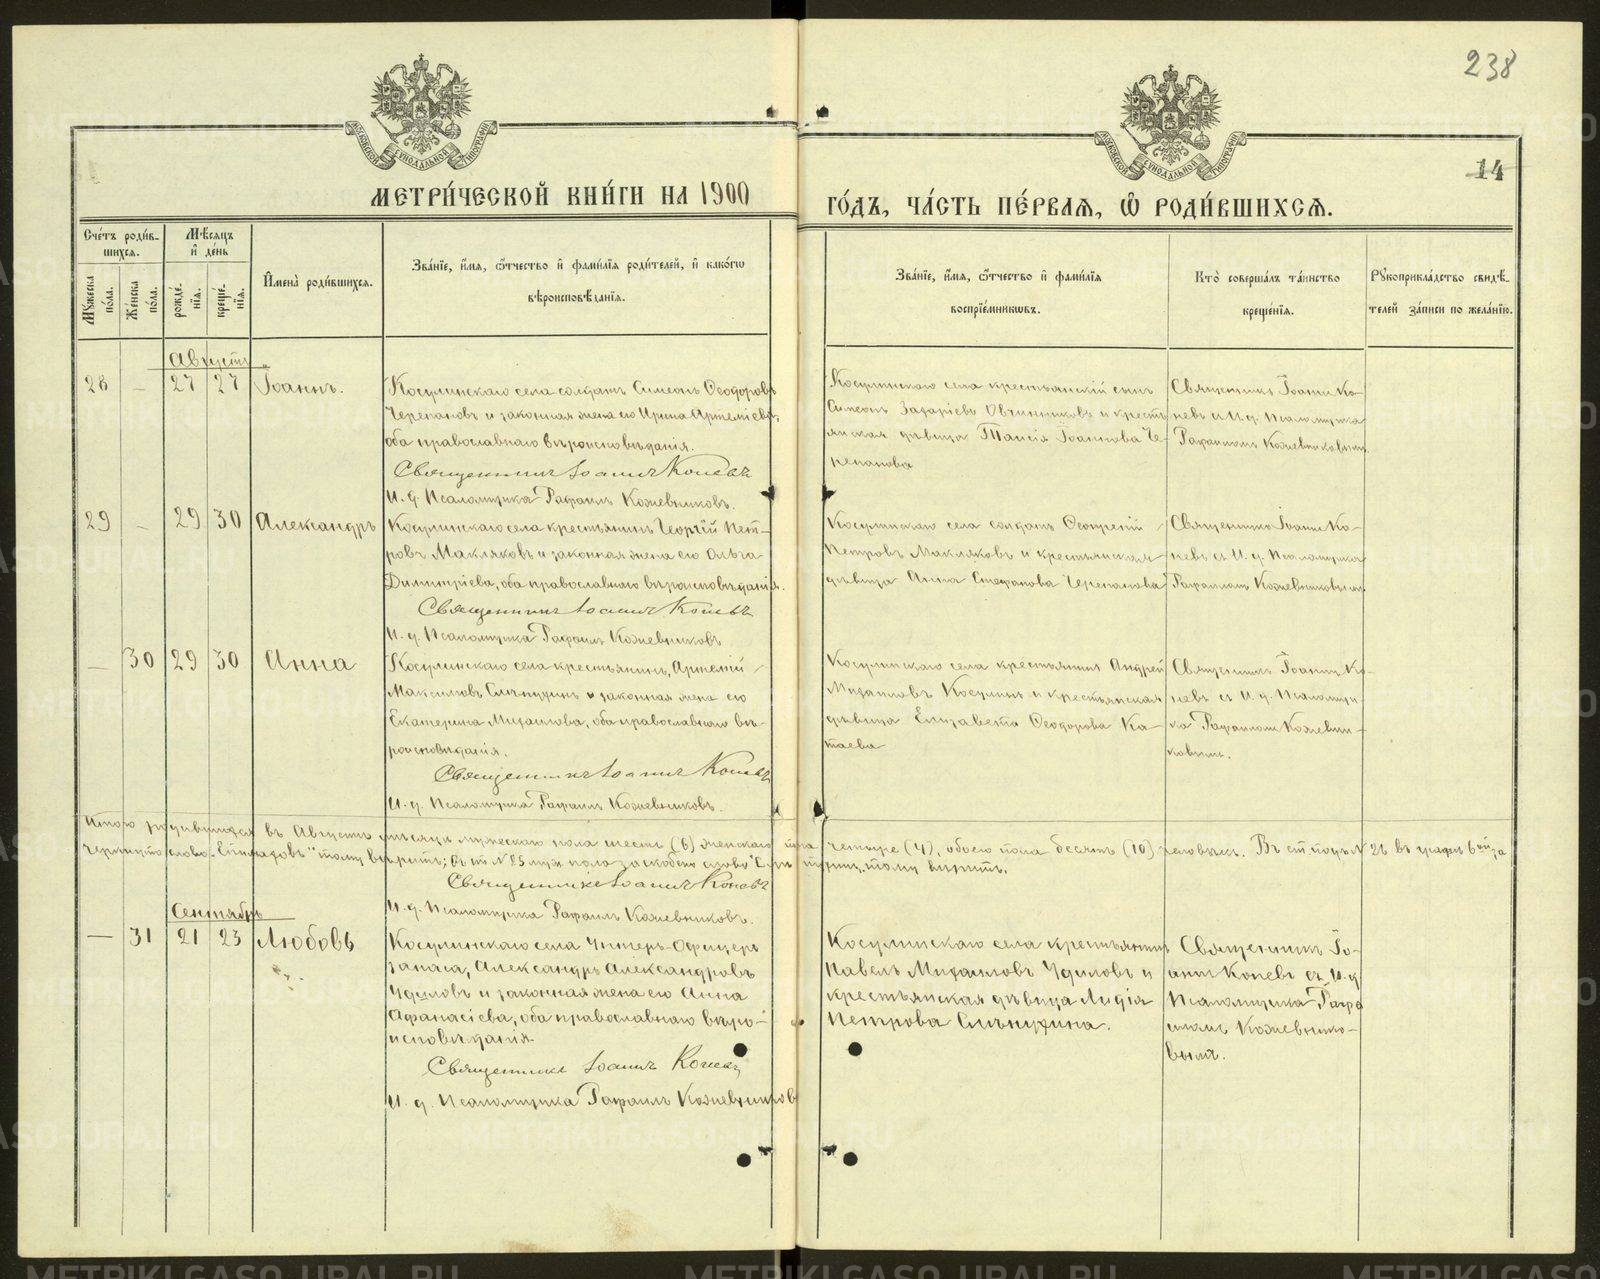 238
14
МОСКОВСКОЙ СѴНОДАЛЬНОЙ ТИПОГРАФІИ
МОСКОВСКОЙ СѴНОДАЛЬНОЙ ТИПОГРАФІИ
МЕТРИ́ЧЕСКОЙ КНИ́ГИ НА 1900
ГО́ДЪ, ЧА́СТЬ ПЕ́РВАЯ, Ѽ РОДИ́ВШИХСЯ.
Сче́тъ роди́в-
шихся.
Мѣ́сяцъ
и҆ де́нь
Мꙋ́жеска по́ла.
Же́нска по́ла.
рожде́-
нїя.
креще́-
нїя.
И҆мена̀ роди́вшихся.
Зва́нїе, и҆́мя, ѻ҆́тчество и҆ фами́лїя роди́телей, и҆ како́гѡ
вѣроисповѣ́данїя.
Зва́нїе, и҆́мя, ѻ҆́тчество и҆ фами́лїя
воспрїе́мникѡвъ.
Кто̀ соверша́лъ та́инство
креще́нїя.
Рꙋкоприкла́дство свидѣ́-
телей за́писи по жела́нїю.
Августъ
28 — 27 27 Іоаннъ.
Косулинскаго села солдатъ Симеонъ Ѳеодоровъ
Черепановъ и законная жена его Ирина Артеміева,
оба православнаго вѣроисповѣданія.
Священникъ Іоаннъ Коневъ
И. д. Псаломщика Рафаилъ Кожевниковъ.
Косулинскаго села крестьянскій сынъ
Симеонъ Захаріевъ Овчинниковъ и кресть-
янская дѣвица Таисія Іоаннова Че-
репанова
Священникъ Іоаннъ Ко-
невъ съ И. д. Псаломщика
Рафаиломъ Кожевниковымъ
29 — 29 30 Александръ
Косулинскаго села крестьянинъ Георгій Пет-
ровъ Макляковъ и законная жена его Ольга
Димитріева, оба православнаго вѣроисповѣданія.
Священникъ Іоаннъ Коневъ
И. д. Псаломщика Рафаилъ Кожевниковъ
Косулинскаго села солдатъ
Петровъ Макляковъ и крестьянская
дѣвица Анна Стефанова Черепанова
Священникъ Іоаннъ Ко-
невъ съ И. д. Псаломщика
Рафаиломъ Кожевниковымъ
— 30 29 30 Анна
Косулинскаго села крестьянинъ Артемій
Максимовъ Слѣпухинъ и законная жена его
Екатерина Михаилова, оба православнаго вѣ-
роисповѣданія.
Священникъ Іоаннъ Коневъ
И. д. Псаломщика Рафаилъ Кожевниковъ.
Косулинскаго села крестьянинъ Андрей
Михаиловъ Косулинъ и крестьянская
дѣвица Елизавета Ѳеодорова Ка-
таева
Священникъ Іоаннъ Ко-
невъ съ И. д. Псаломщи-
ка Рафаиломъ Кожевни-
ковымъ.
Итого родившихся въ Августѣ мѣсяцѣ мужескаго пола шесть (6) женскаго пола четыре (4), обоего пола десять (10) человѣкъ. Въ ст. подъ № 26 въ графѣ 6ой за
черкнуто слово тому вѣрить; въ ст. № 25 муж. пола за скобено слово тому вѣрить.
Священникъ Іоаннъ Коневъ
И. д. Псаломщика Рафаилъ Кожевниковъ.
Сентябрь
— 31 21 23 Любовь
Косулинскаго села Унтеръ-Офицеръ
запаса, Александръ Александровъ
Удиловъ и законная жена его Анна
Аѳанасіева, оба православнаго вѣро-
исповѣданія.
Священникъ Іоаннъ Коневъ
И. д. Псаломщика Рафаилъ Кожевниковъ
Косулинскаго села крестьянинъ
Павелъ Михаиловъ Удиловъ и
крестьянская дѣвица Лидія
Петрова Слѣпухина.
Священникъ Іо-
аннъ Коневъ съ И. д.
Псаломщика Рафа-
иломъ Кожевнико-
вымъ.
METRIKI.GASO-URAL.RU